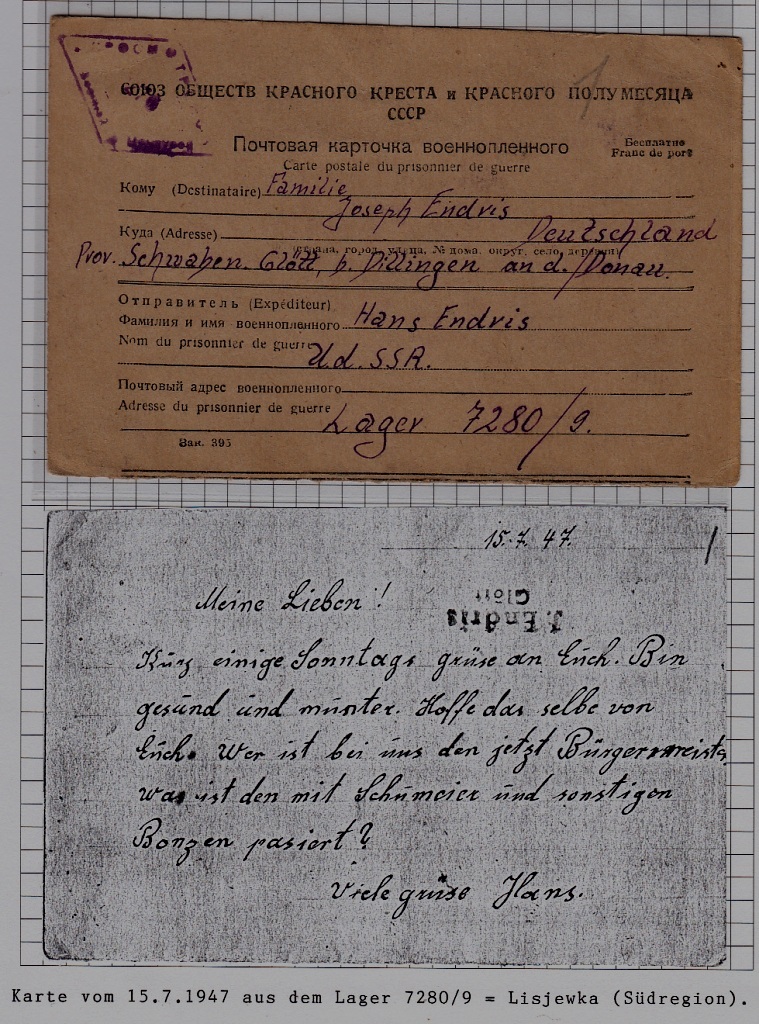 ПРОСМОТРЕНО
СОЮЗ ОБЩЕСТВ КРАСНОГО КРЕСТА и КРАСНОГО ПОЛУМЕСЯЦА
СССР
Почтовая карточка военнопленного
Бесплатно
Carte postale du prisonnier de guerre
Franc de port
Кому (Destinataire) Familie
Joseph Endris
Куда (Adresse) Deutschland
страна, город, улица, № дома, округ, село, деревня
Prov. Schwaben. Glött, p. Dillingen an d. Donau.
Отправитель (Expéditeur)
Фамилия и имя военнопленного Hans Endris
Nom du prisonnier de guerre
U.d.SSR.
Почтовый адрес военнопленного
Adresse du prisonnier de guerre
Lager 7280/9.
Зак. 395
15.7.47.
Meine Lieben!
J. Endris
Glött
Kurz einige Sonntags grüse an Euch. Bin
gesund und munter. Hoffe das selbe von
Euch. Wer ist bei uns den jetzt Bürgermeister,
was ist den mit Schumeier und sonstigen
Bonzen pasiert?
Viele grüse Hans.
Karte vom 15.7.1947 aus dem Lager 7280/9 = Lisjewka (Südregion).